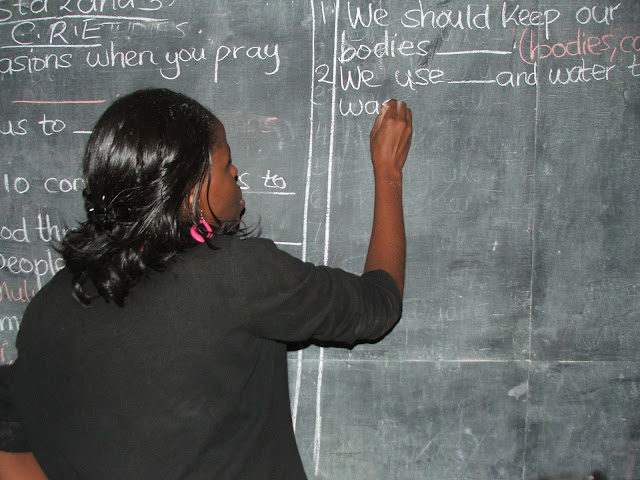 Std 2 and 3
C.R.E
asions when you pray
us to
10 con s to
od th
people
Mul
m
1. We should keep our
bodies ______ (bodies, co
2 We use ____ and water t
was